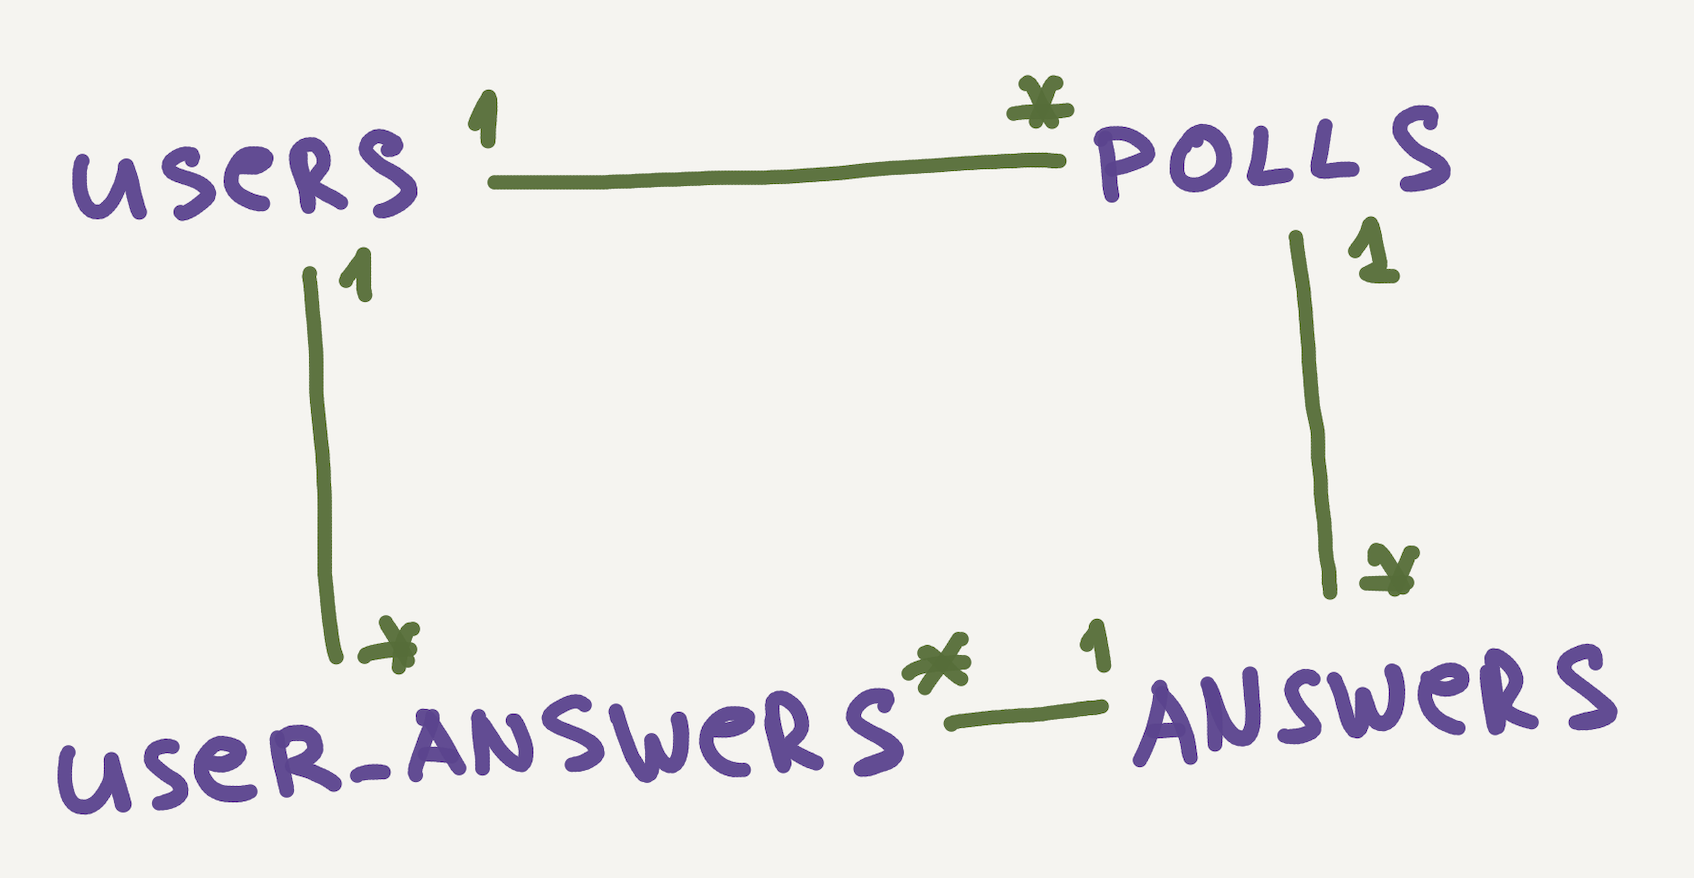 USERS 1 * POLLS
1 1
* *
USER_ANSWERS * 1 ANSWERS